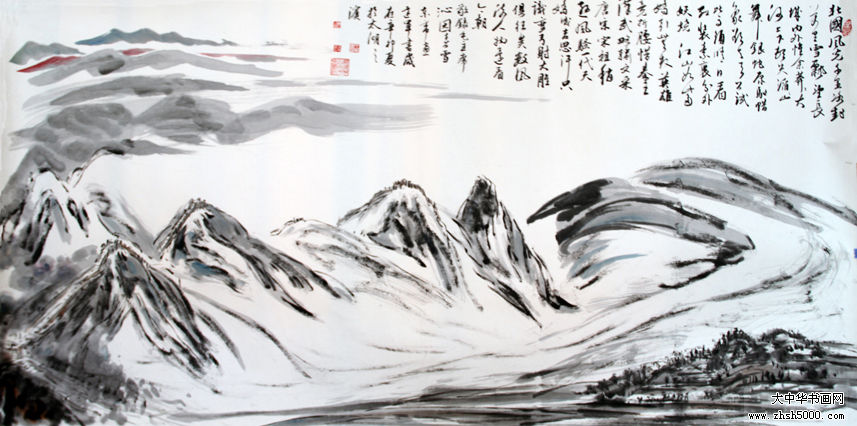 北國風光千里冰封
萬里雪飄望長
城内外惟余莽莽大
河上下頓失滔滔山
舞銀蛇原馳蠟
象欲與天公試
比高須晴日看
紅裝素裹分外
妖嬈江山如此多
嬌引無數英雄
竟折腰惜秦皇
漢武略輸文采
唐宗宋祖稍
遜風騷一代天
驕成吉思汗只
識彎弓射大雕
俱往矣數風
流人物還看
今朝
敬録毛主席
沁園春雪
大中华书画网
www.zhsh5000.com